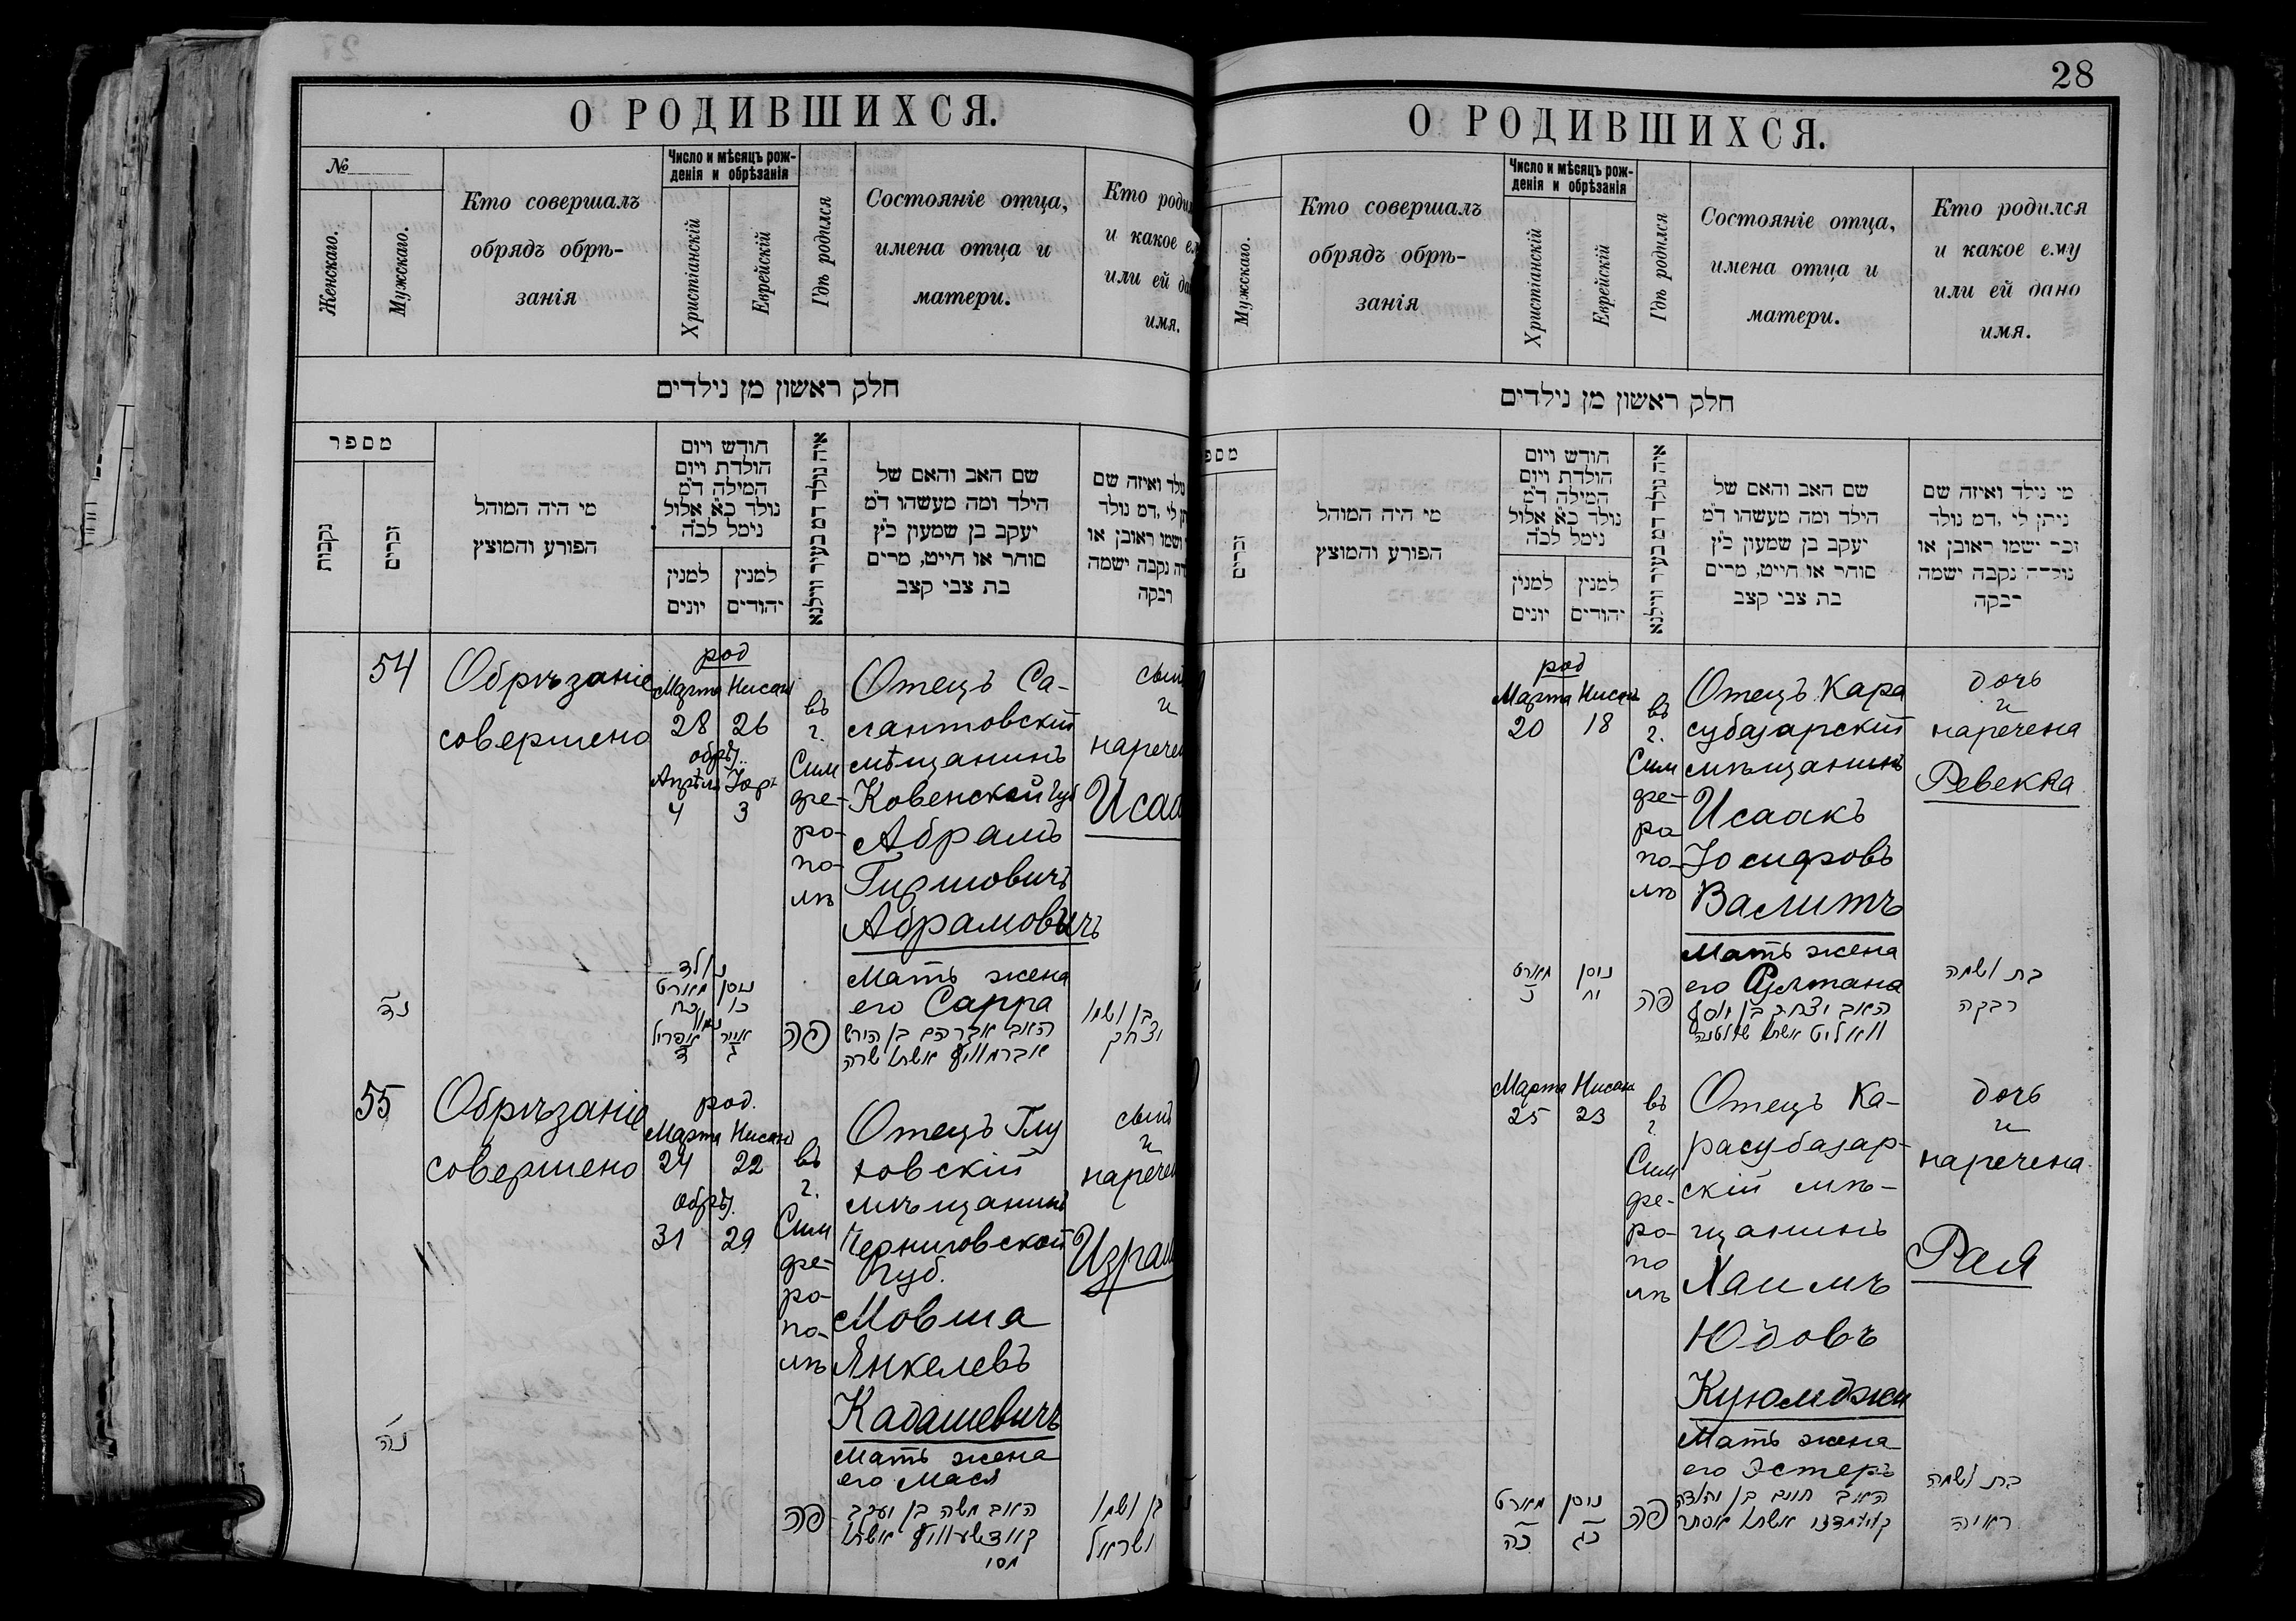 28
О РОДИВШИХСЯ.
№
Женскаго.
Мужскаго.
Кто совершалъ
обрядъ обрѣ-
занія
Число и мѣсяцъ рож-
денія и обрѣзанія
Христіанскій
Еврейскій
Гдѣ родился
Состояніе отца,
имена отца и
матери.
Кто роди
и какое е
или ей да
имя.
חלק ראשון מן נילדים
מספר
נקבות
זכרים
מי היה המוהל
הפורע והמוצץ
חודש ויום
הולדת ויום
המילה ד״מ
נולד כ״א אלול
נימל לכ״ה
למנין
יונים
למנין
יהודים
איה נולד דמ בעיר ווילנא
שם האב והאם של
הילד ומה מעשהו ד״מ
יעקב בן שמעון כ״ץ
סוחר או חייט, מרים
בת צבי קצב
ולד ואיזה שם
לי, דמ נולד
ושמו ראובן או
נקבה ישמה
רבקה
54
Обрѣзаніе
совершено
род
Марта Нисанъ
28 26
обрѣз.
Апрѣля Іоръ
4 3
въ
г.
Сим
фе-
ро-
по-
лѣ
Отецъ Са-
лантовскій
мѣщанинъ
Ковенской губ
Абрамъ
Гиршовичъ
Абрамовичъ
Мать жена
его Сарра
האב אברהם בן הירש
אברמוויץ אשתו שרה
сынъ
и
наречен
Исаа
נד
נולד
מארט ניסן
כח כו
נימול
אפריל אייר
ד ג
פה
בן ושמו
יצחק
55
Обрѣзаніе
совершено
род.
Марта Нисанъ
24 22
обрѣз.
31 29
въ
г.
Сим
фе-
ро-
по-
лѣ
Отецъ Глу
ховскій
мѣщанинъ
Черниговской
Губ.
Мовша
Янкелевъ
Кадашевичъ
Мать жена
его Мася
האב משה בן יעקב
קאדשעוויץ אשתו
מסי
сынъ
и
наречен
Изра
נה
פה
בן ושמו
ישראל
О РОДИВШИХСЯ.
Мужскаго.
Кто совершалъ
обрядъ обрѣ-
занія
Число и мѣсяцъ рож-
денія и обрѣзанія
Христіанскій
Еврейскій
Гдѣ родился
Состояніе отца,
имена отца и
матери.
Кто родился
и какое ему
или ей дано
имя.
חלק ראשון מן נילדים
מספ
זכרים
מי היה המוהל
הפורע והמוצץ
חודש ויום
הולדת ויום
המילה ד״מ
נולד כ״א אלול
נימל לכ״ה
למנין
יונים
למנין
יהודים
איה נולד דמ בעיר ווילנא
שם האב והאם של
הילד ומה מעשהו ד״מ
יעקב בן שמעון כ״ץ
סוחר או חייט, מרים
בת צבי קצב
מי נילד ואיזה שם
ניתן לי, דמ נולד
זכר ישמו ראובן או
נולדה נקבה ישמה
רבקה
род
Марта Нисанъ
20 18
въ
г.
Сим
фе-
ро
по-
лѣ
Отецъ Кара
субазарскій
мѣщанинъ
Исаакъ
Іосифовъ
Валитъ
Мать жена
его Султана
האב יצחק בן יוסף
וואליט אשתו שולטנה
дочь
и
наречена
Ревекка
מארט ניסן
כ יח
פה
בת ושמה
רבקה
Марта Нисанъ
25 23
въ
г.
Сим
фе-
ро-
по
лѣ
Отецъ Ка-
расубазар-
скій мѣ-
щанинъ
Хаимъ
Юдовъ
Куюмджи
Мать жена
его Эстеръ
האב חיים בן יהודה
קויומדזי אשתו אסתר
дочь
и
наречена
Рая
מארט ניסן
כה כג
פה
בת ושמה
ראיה